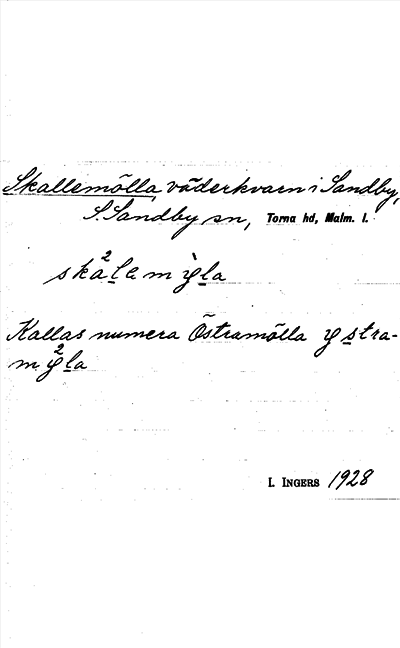 Skallemölla, väderkvarn i Sandby,
S. Sandby sn, Torna hd, Malm. l.
Kallas numera Östramölla
I. INGERS 1928